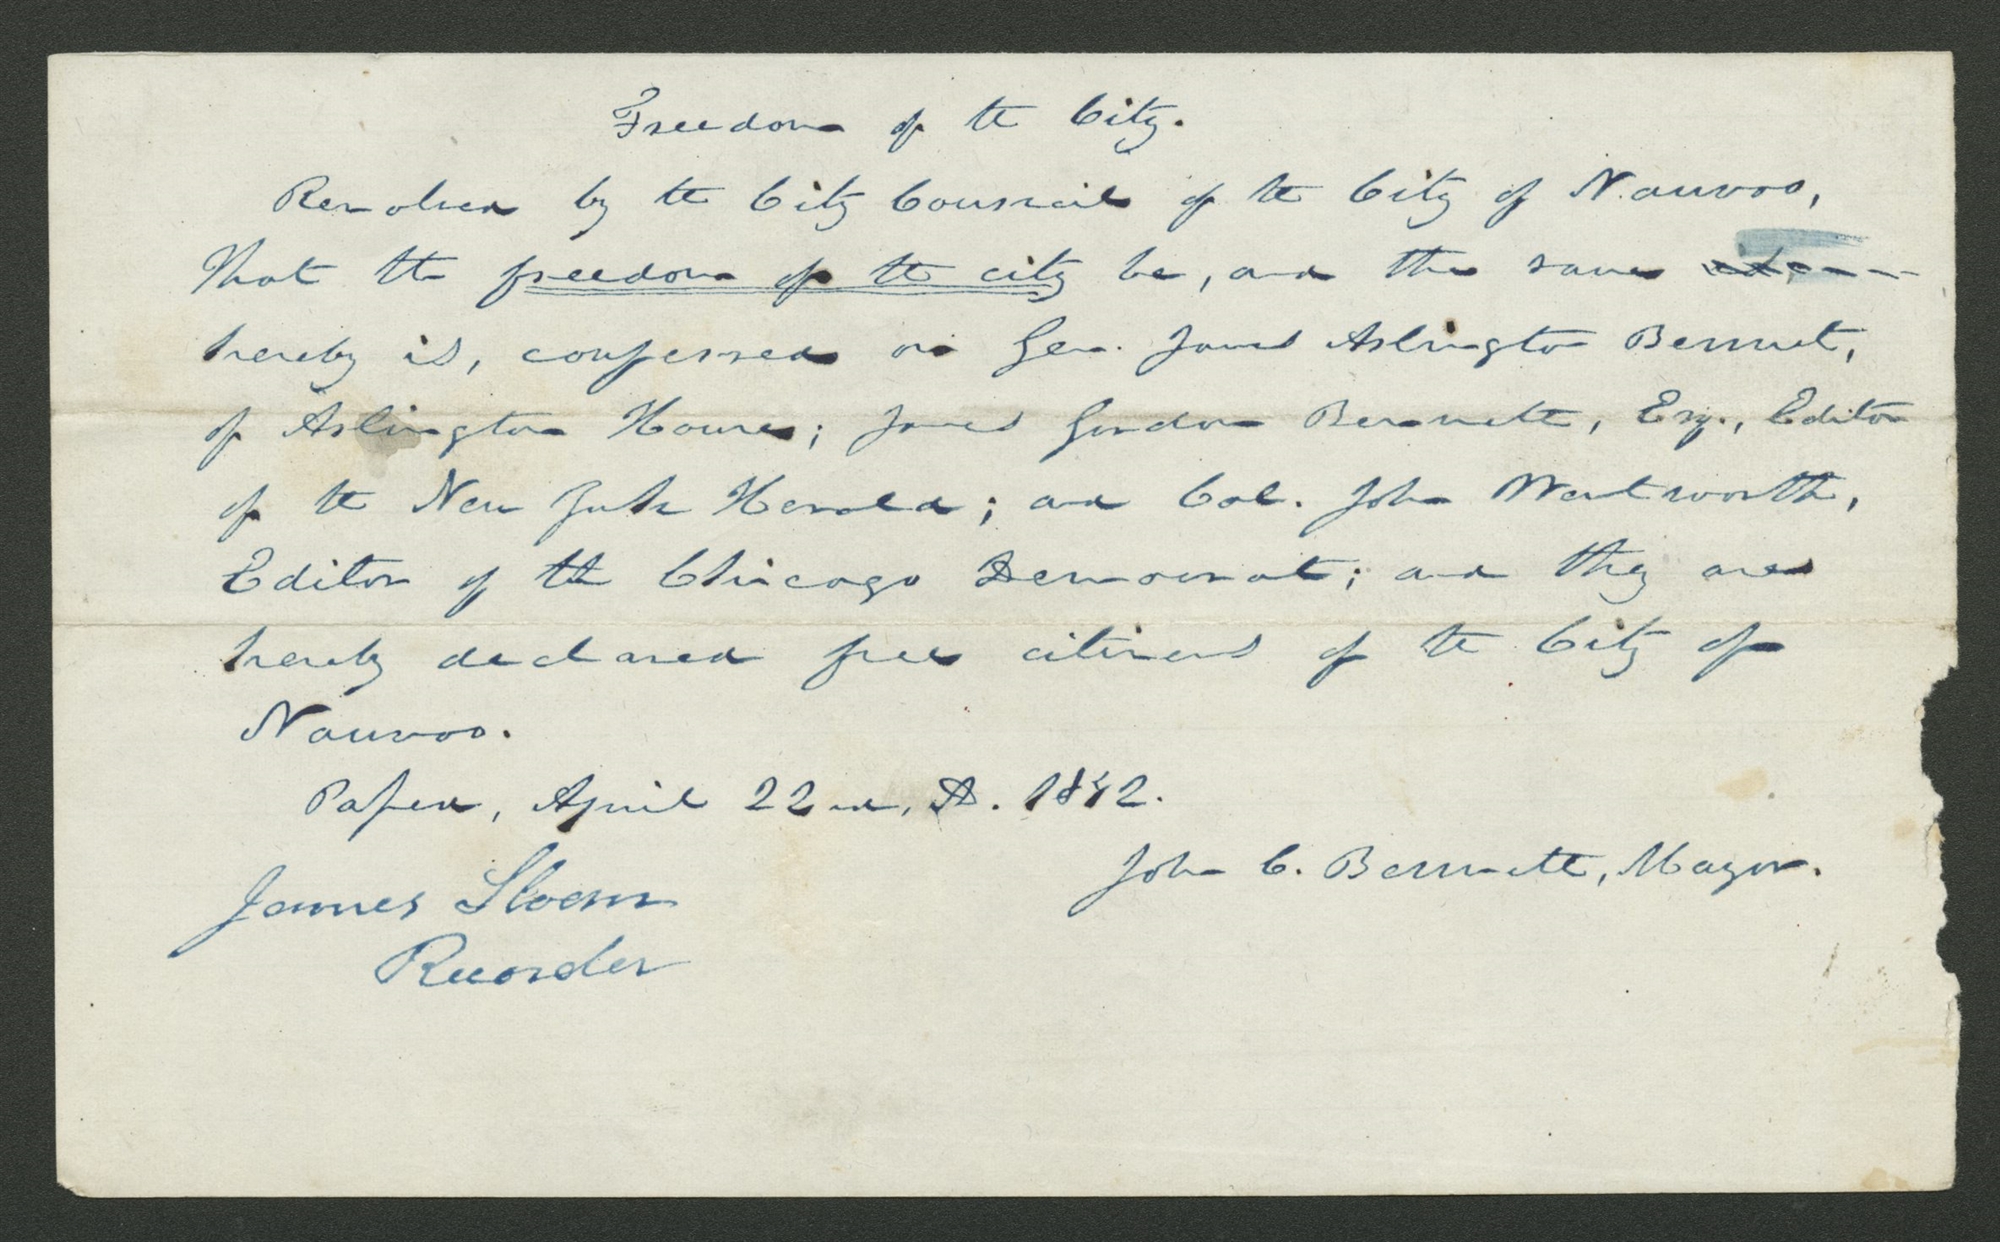 Freedom of the City.
Resolved by the City Council of the City of Nauvoo,
That the freedom of the city be, and the same
hereby is, conferred on Gen. James Arlington Bennet,
of Arlington House; James Gordon Bennett, Esq., Editor
of the New York Herald; and Col. John Wentworth,
Editor of the Chicago Democrat; and they are
hereby declared free citizens of the City of
Nauvoo.
Passed, April 22nd, A. 1842.
John C. Bennett, Mayor.
James Sloan
Recorder